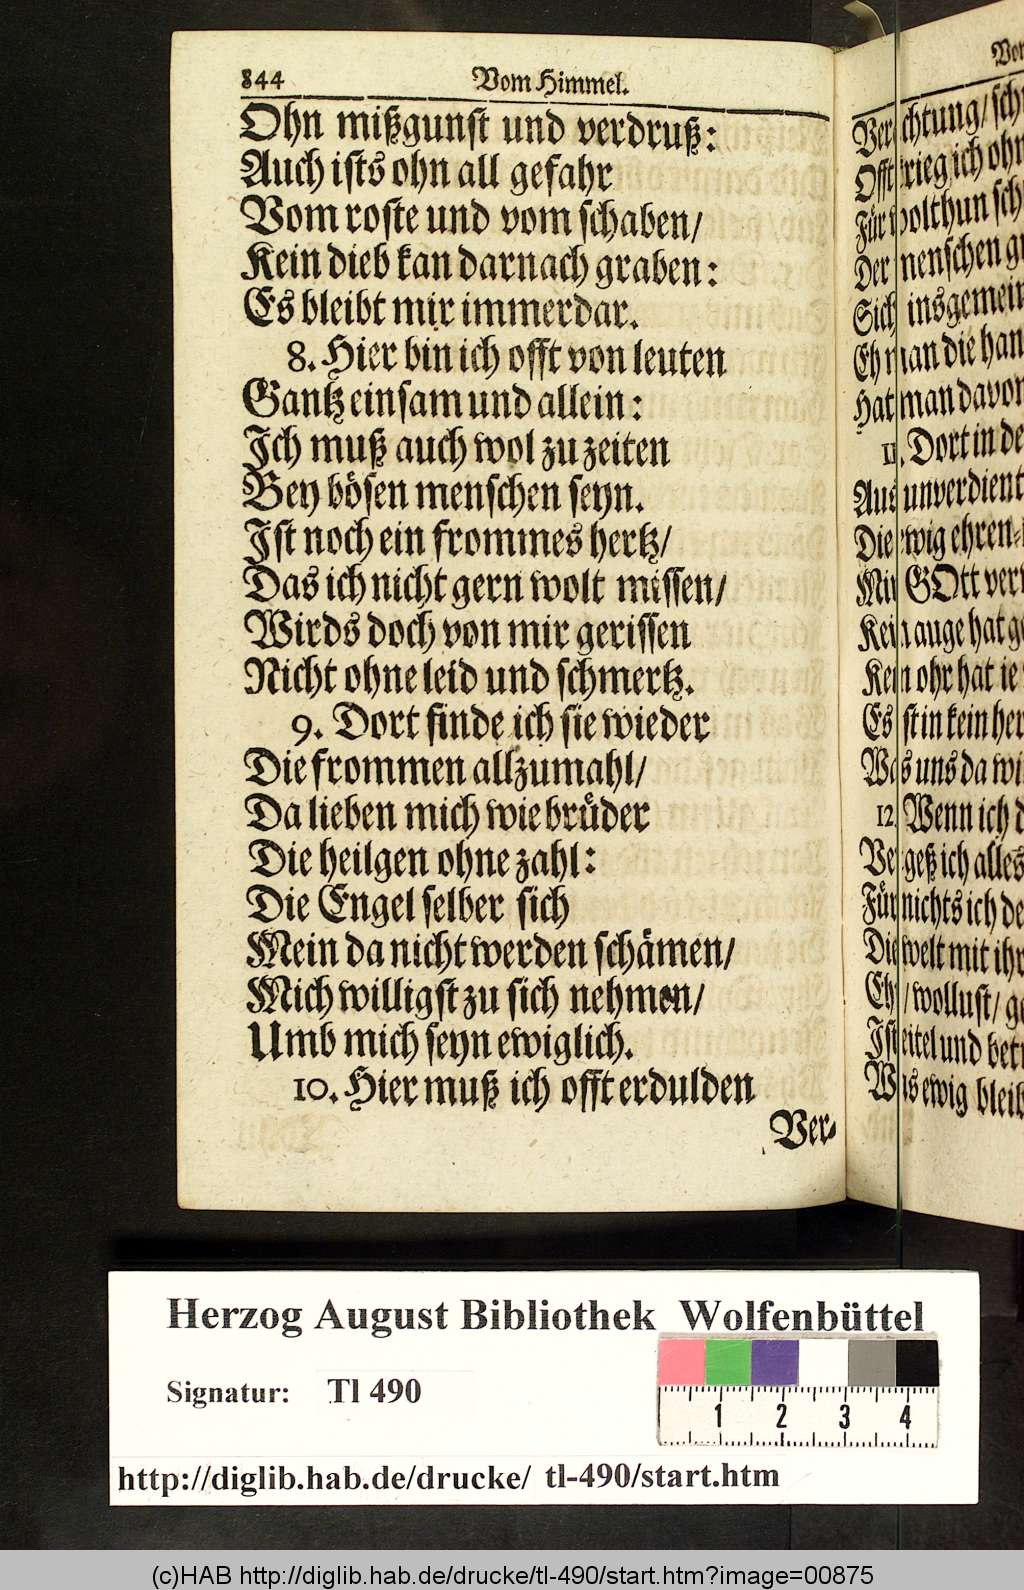 844
Vom Himmel.
Ohn mißgunst und verdruß:
Auch ists ohn all gefahr
Vom roste und vom schaben/
Kein dieb kan darnach graben:
Es bleibt mir immerdar.
8. Hier bin ich offt von leuten
Gantz einsam und allein:
Ich muß auch wol zu zeiten
Bey bösen menschen seyn.
Ist noch ein frommes hertz/
Das ich nicht gern wolt missen/
Wirds doch von mir gerissen
Nicht ohne leid und schmertz.
9. Dort finde ich sie wieder
Die frommen allzumahl/
Da lieben mich wie brüder
Die heilgen ohne zahl:
Die Engel selber sich
Mein da nicht werden schämen/
Mich willigst zu sich nehmen/
Umb mich seyn ewiglich.
10. Hier muß ich offt erdulden
Ver-
ich ohn
Der menschen
Sich insgemein
Eh man die
Hat man davon
11. Dort in
Aus unverdient
Die ewig ehren-
Mir GOtt
Kein auge hat
Kein ohr hat ie
Es ist in kein
Was uns da
12. Wenn ich
Vergeß ich alles
Für nichts ich
Die welt mit
Ehr/ wollust/
Ist eitel und
Was ewig
Herzog August Bibliothek Wolfenbüttel
Signatur: Tl 490
1 2 3 4
http://diglib.hab.de/drucke/ tl-490/start.htm
(c)HAB http://diglib.hab.de/drucke/tl-490/start.htm?image=00875